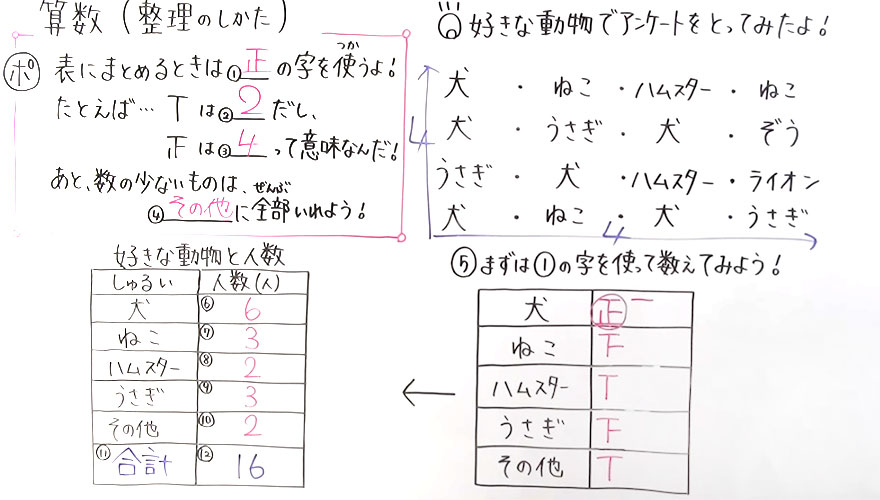 算数(整理のしかた)
ポ 表にまとめるときは①正の字を使うよ!
つか
たとえば…丅は②2だし、
𤴓は③4って意味なんだ!
あと、数の少ないものは、
④その他に全部いれよう!
ぜんぶ
好きな動物でアンケートをとってみたよ!
犬・ねこ・ハムスター・ねこ
犬・うさぎ・犬・ぞう
うさぎ・犬・ハムスター・ライオン
犬・ねこ・犬・うさぎ
4
4
⑤まずは①の字を使って数えてみよう!
犬 正一
ねこ 下
ハムスター 丅
うさぎ 下
その他 丅
好きな動物と人数
しゅるい 人数(人)
犬 ⑥6
ねこ ⑦3
ハムスター ⑧2
うさぎ ⑨3
その他 ⑩2
⑪合計 ⑫16